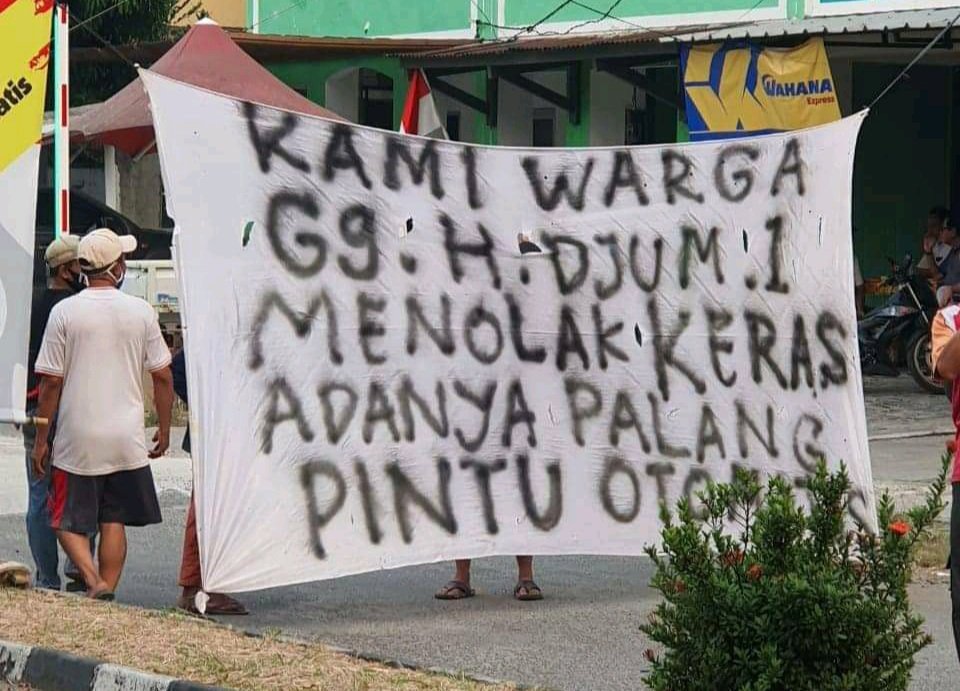 atis
WAHANA
Express
KAMI WARGA
Gg. H. DJUM.1
MENOLAK KERAS
ADANYA PALANG
PINTU